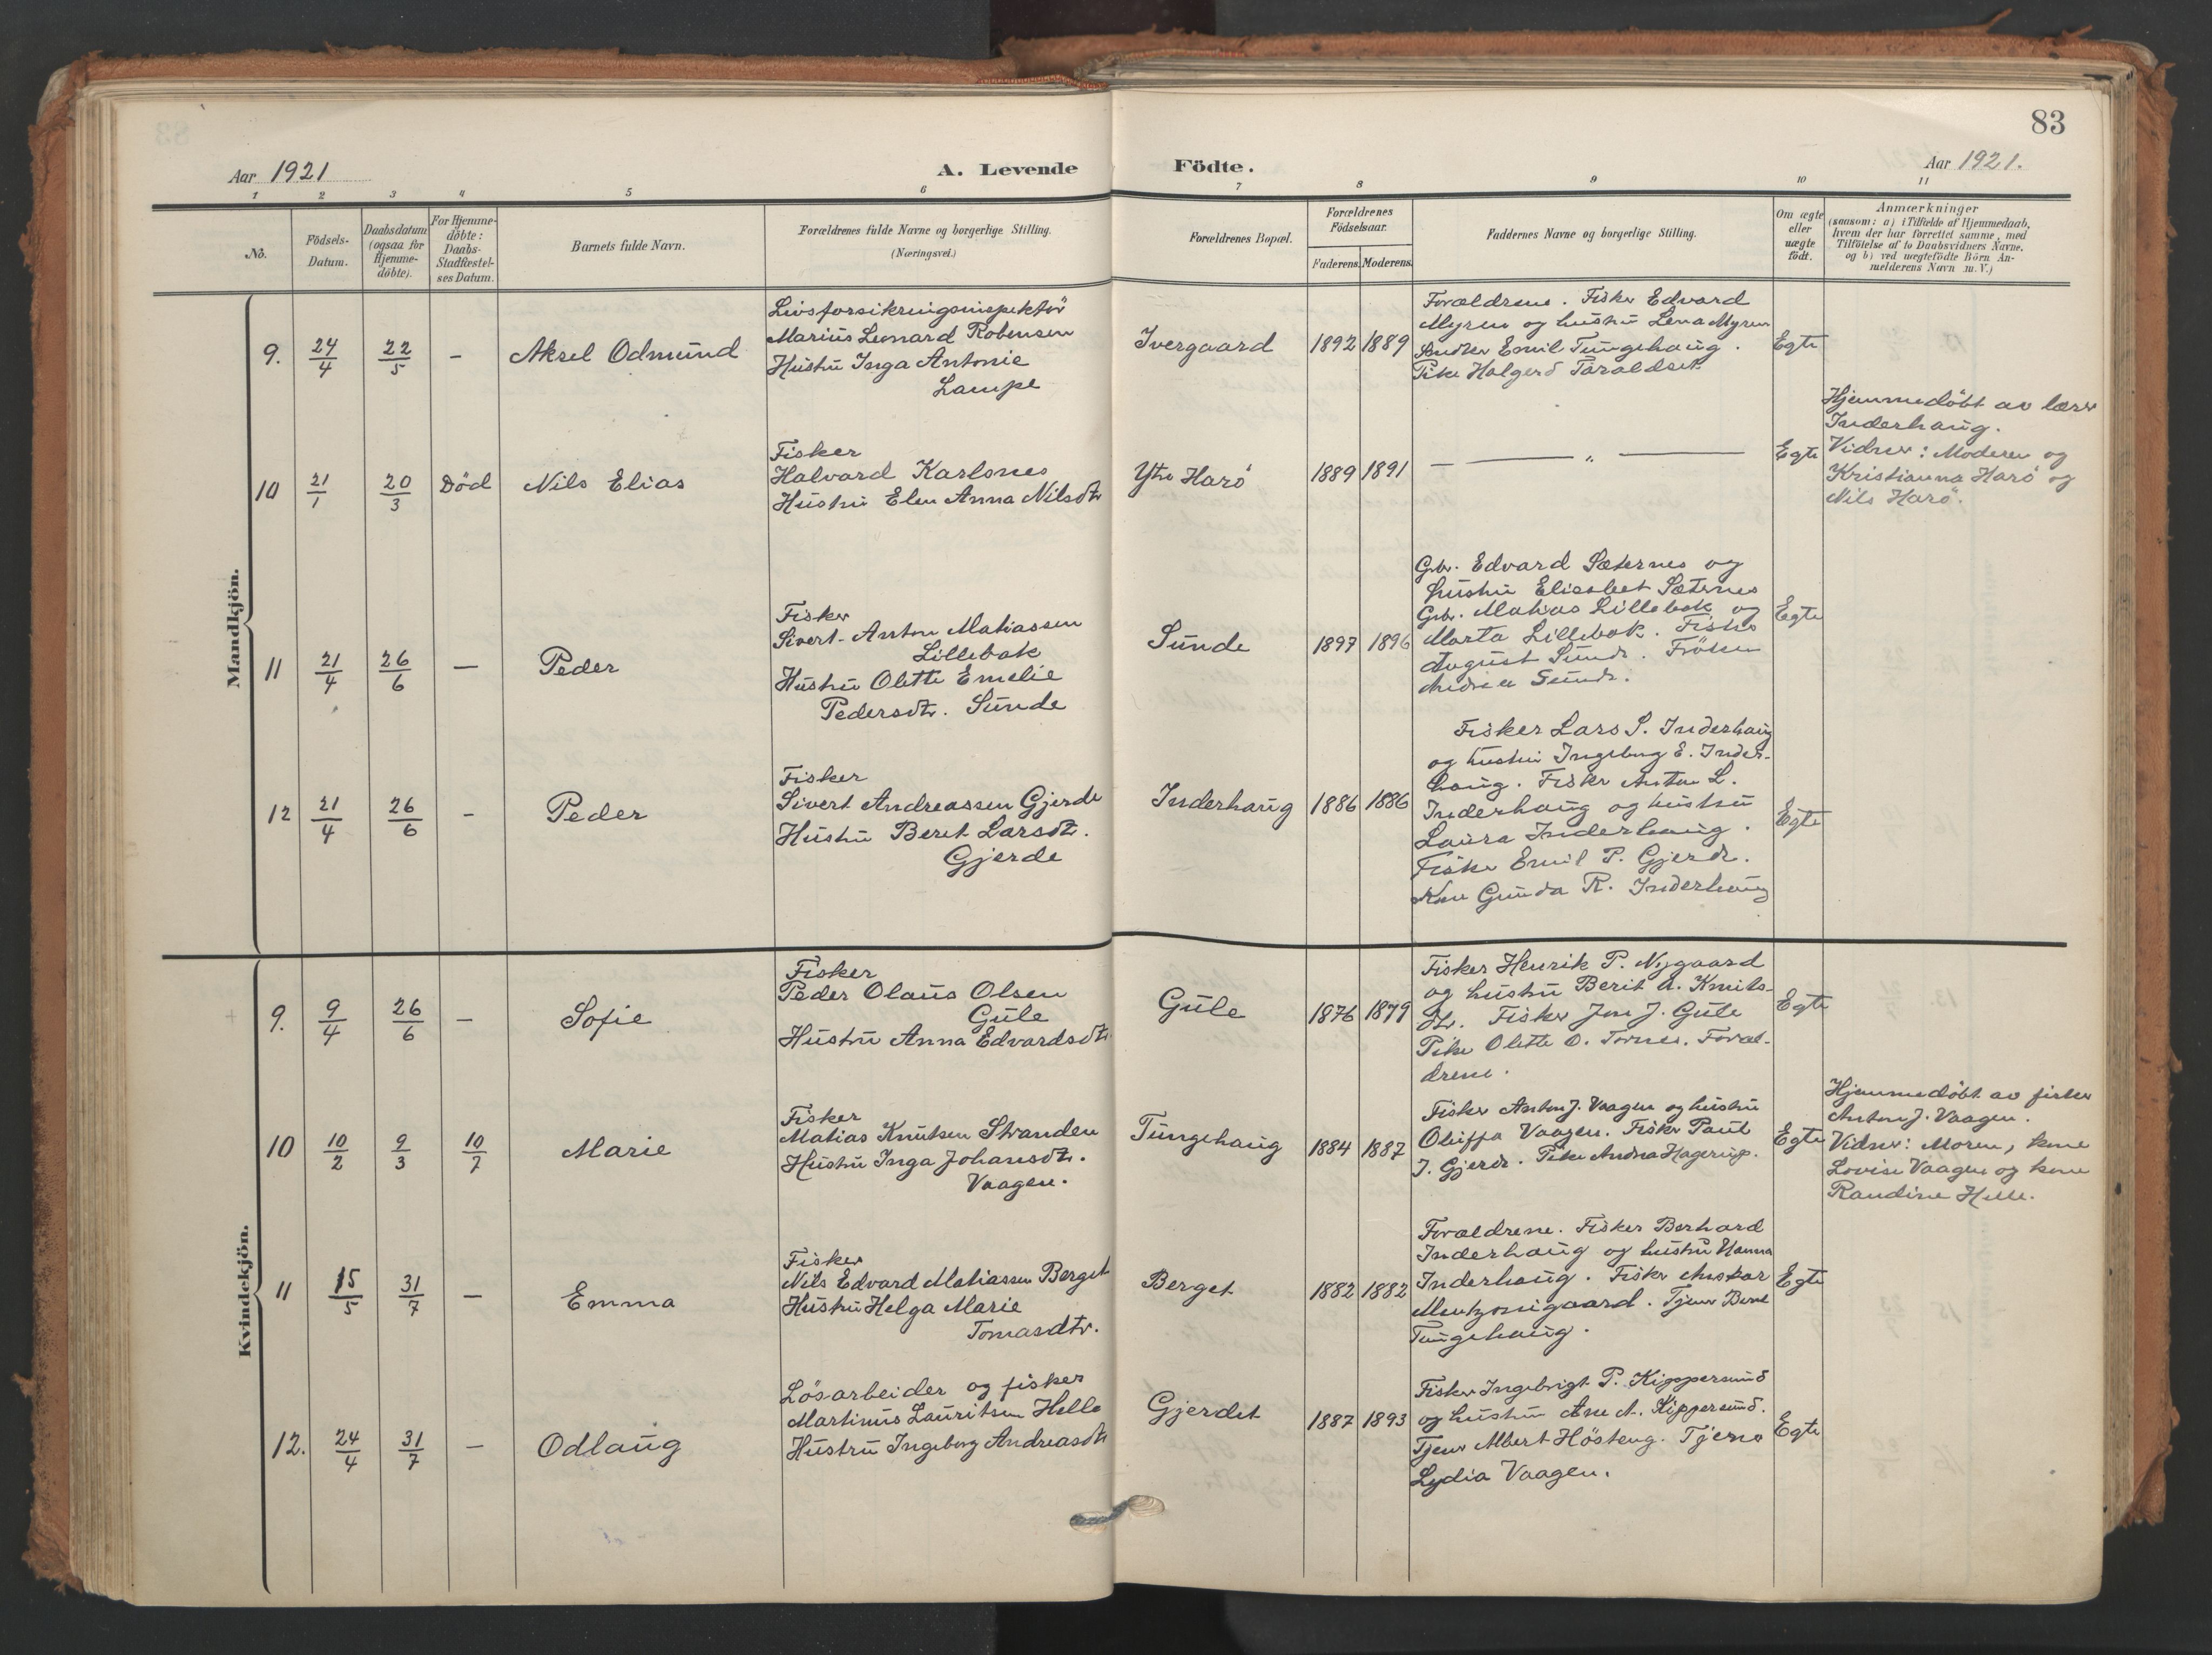 83
Aar 1921
A. Levende
Födte.
Aar 1921.
1 2 3 4 5 6 7 8 9 10 11
No.
Födsels-
Datum.
Daabsdatum
(ogsaa for
Hjemme-
döbte).
For Hjemme-
döbte:
Daabs-
Stadfæstel-
ses Datum.
Barnets fulde Navn.
Forældrenes fulde Navne og borgerlige Stilling.
(Næringsvei.)
Forældrenes Bopæl.
Forældrenes
Födselsaar.
Faderens. Moderens.
Faddernes Navne og borgerlige Stilling.
Om ægte
eller
uægte
födt.
Anmærkninger
(saasom: a) i Tilfælde af Hjemmedaab,
hvem der har forrettet samme, med
Tilföielse af to Daabsvidners Navne,
og b) ved uægtefödte Börn An-
melderens Navn m. V.)
Mandkjön.
9. 24/4 22/5 – Aksel Odmund
Livsforsikringsinspektör
Marius Leonard Robensen
Hustru Inga Antonie
Lampe
Ivergaard 1892 1889
Forældrene. Fisker Edvard
Myren og hustru Lena Myren
Emil Tungehaug.
Pike Halgerd Taraldset.
Egte
10 21/1 20/3 Död Nils Elias
Fisker
Halvard Karlsnes
Hustru Elen Anna Nilsdtr
Ytre Harö 1889 1891
— „ —
Egte
Hjemmedöbt av lærer
Inderhaug.
Vidner: Moderen og
Kristianna Harö og
Nils Harö.
11 21/4 26/6 — Peder
Fisker
Sivert Anton Matiassen
Lillebak
Hustru Olette Emelie
Pedersdtr. Sunde
Sunde 1897 1896
Gbr. Edvard Sæternes og
hustru Elisabet Sæternes
Gbr. Matias Lillebak og
Marta Lillebak. Fisker
August Sunde. Fröken
Andrea Sunde.
Egte
12 21/4 26/6 – Peder
Fisker
Sivert Andreassen Gjerde
Hustru Beret Larsdtr.
Gjerde
Inderhaug 1886 1886
Fisker Lars S. Inderhaug
og hustru Ingeborg E. Inder-
haug. Fisker Anton L.
Inderhaug og hustru
Laura Inderhaug.
Fisker Emil P. Gjerde.
Kone Gunda R. Inderhaug
Egte
Kvindekjön.
9. 9/4 26/6 — Sofie
Fisker
Peder Olaus Olsen
Gule
Hustru Anna Edvardsdtr.
Gule 1876 1879
Fisker Henrik P. Nygaard
og hustru Berit A. Knuts-
dtr. Fisker Jon J. Gule
Pike Olette O. Tornes. Foræl-
drene.
Egte
10 10/2 9/3 10/7 Marie
Fisker
Matias Knutsen Stranden
Hustru Inga Johansdtr.
Vaagen.
Tungehaug 1884 1887
Fisker Anton J. Vaagen og hustru
Oliffa Vaagen. Fisker Paul
J. Gjerde. Pike Andrea Hagerup.
Egte
Hjemmedöbt av fisker
Anton J. Vaagen.
Vidner: Moren, kone
Lovise Vaagen og kone
Randine Helle.
11 15/5 31/7 — Emma
Fisker
Nils Edvard Matiassen Berget
Hustru Helga Marie
Tomasdtr.
Berget 1882 1882
Forældrene. Fisker Berhard
Inderhaug og hustru Hanna
Inderhaug. Fisker Anskar
Mentzonigaard. Tjener
Tungehaug.
Egte
12. 24/4 31/7 — Odlaug
Lösarbeider og fisker
Martinus Lauritsen Helle
Hustru Ingeborg Andreasdtr
Gjerdet 1887 1893
Fisker Ingebrigt P. Kippersund
og hustru Ane A. Kippersund.
Tjener Albert Hösteng. Tjener
Lydia Vaagen.
Egte